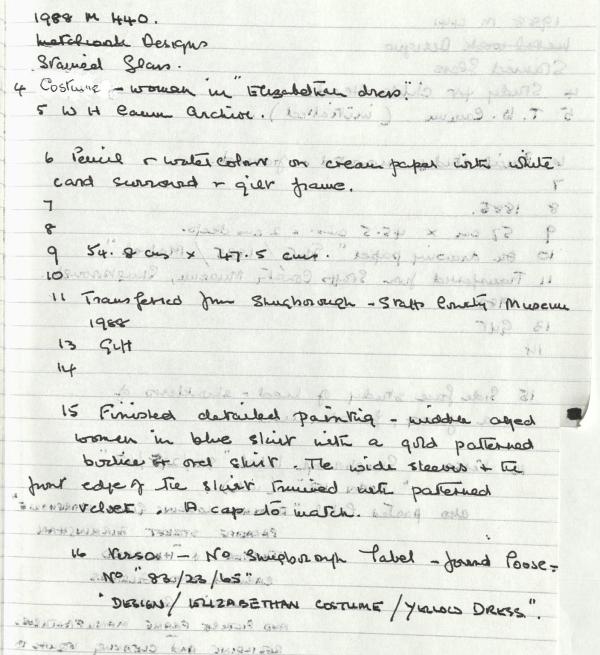 1988 M 440.
Metchcock Designs
Stained Glass.
4 Costume - women in "Elizabethan dress".
5 W H Camm Archive.
6 Pencil & watercolour on cream paper with white
card surround & gilt frame.
7
8
9 54.8 cms × 47.5 cms.
10
11 Transferred from Shugborough - Staffs County Museum
1988
13 Gift
14
15 Finished detailed painting - middle aged
women in blue skirt with a gold patterned
bodice & over skirt. The wide sleeves & the
front edge of the skirt trimmed with patterned
velvet. A cap to match.
16 Verso - No Shugborough label - found loose =
No "83/23/65"
"DESIGN / ELIZABETHAN COSTUME / YELLOW DRESS".